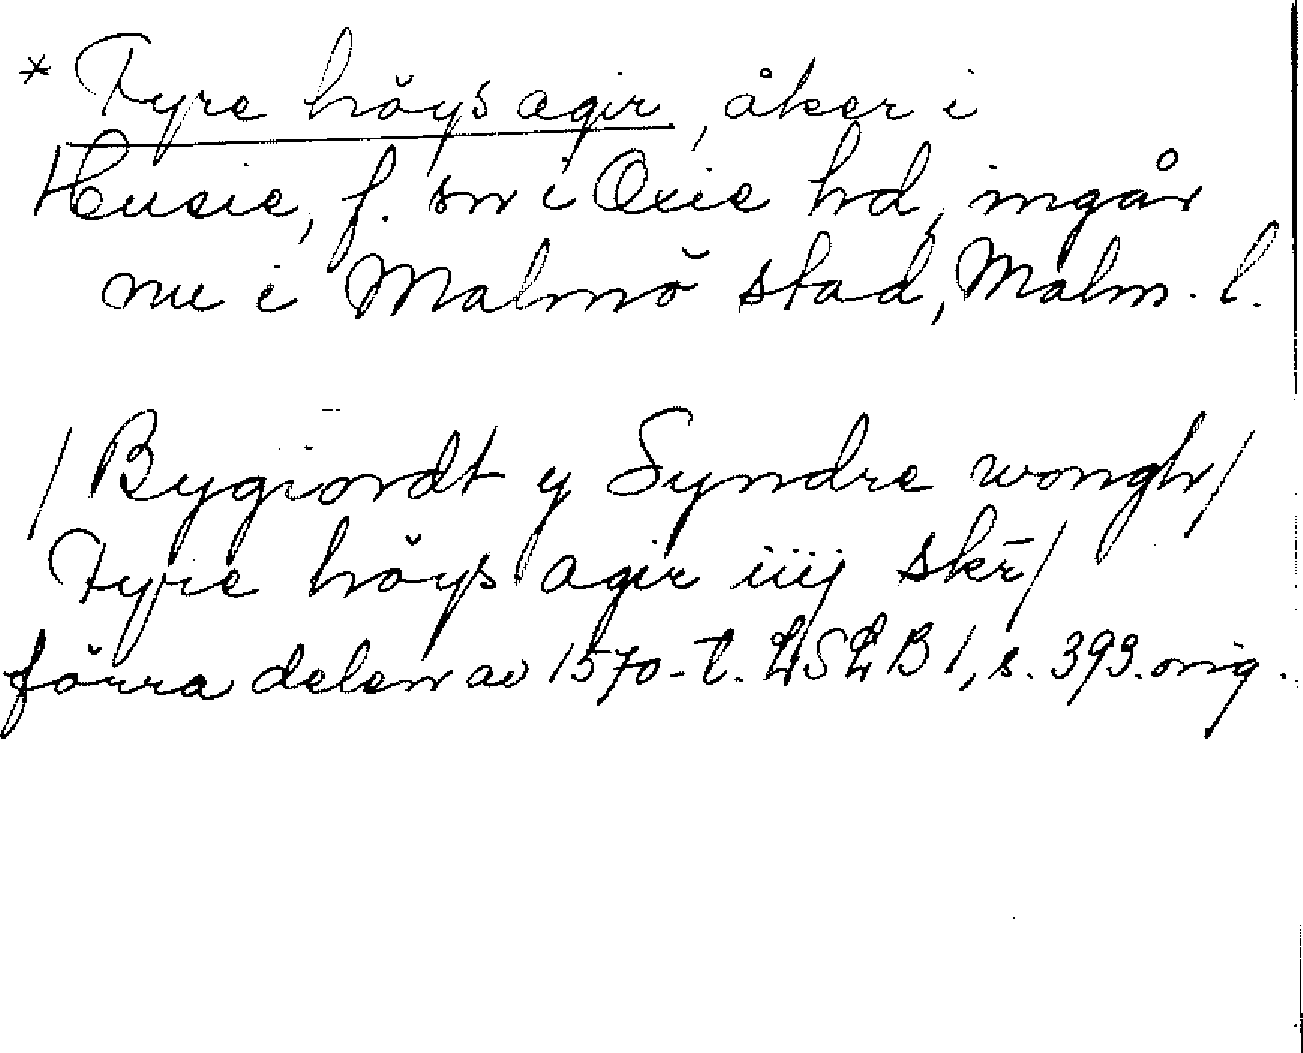 * Tyre höys agir, åker i
Husie, f. sn i Oxie hd, ingår
nu i Malmö stad, Malm. l.
/ Bygiordt y Syndre wongh /
Tyre höys agir iiij skr̄ /
förra delen av 1570-t. LSLB 1, s. 393. orig.